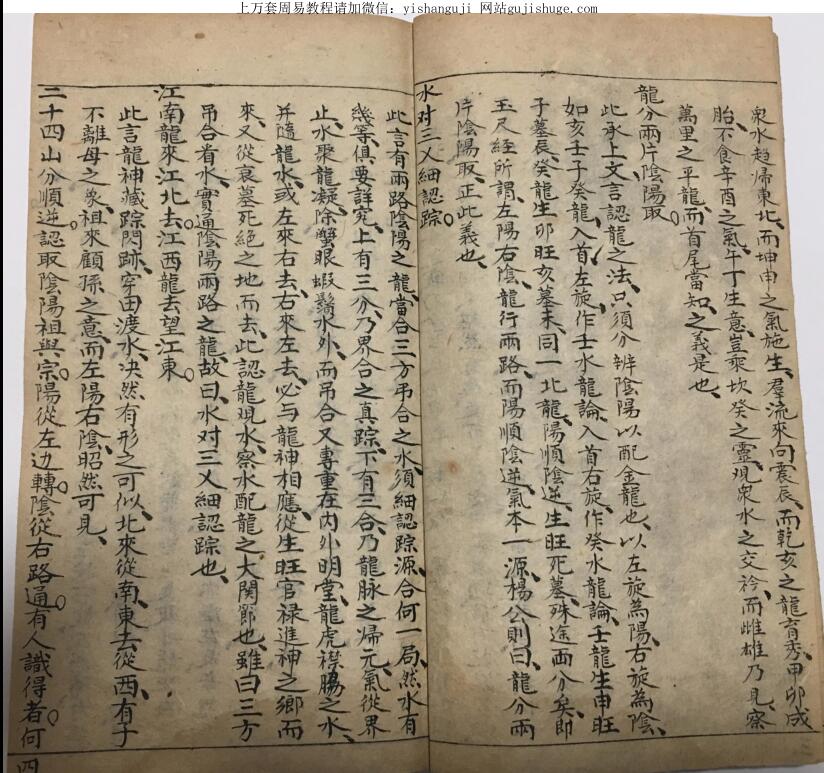 上万套周易教程请加微信：yishanguji 网站gujishuge.com
衆水趋帰東北、而坤申之氣施生、羣流來向震辰、而乾亥之龍育秀、甲卯成
胎、不食辛酉之氣、午丁生意、豈乘坎癸之靈、观衆水之交衿、而雌雄乃見、察
萬里之平龍、而首尾當知、之義是也、
龍分兩片陰陽取。
此承上文言認龍之法、只須分辨陰陽以配金龍也、以左旋為陽、右旋為陰、
如亥壬子癸龍、入首左旋、作壬水龍論、入首右旋、作癸水龍論、壬龍生申旺
子墓辰、癸龍生卯旺亥墓未、同一北龍、陽順陰逆、生旺死墓、殊途而分矣、即
玉尺経所謂、左陽右陰、龍行兩路、而陽順陰逆、氣本一源、楊公則曰、龍分兩
片陰陽取、正此義也、
水对三乂細認踪。
此言有兩路陰陽之龍、當合三方吊合之水、須細認踪源、合何一局、然水有
幾等、俱要詳究、上有三分、乃界合之真踪、下有三合、乃龍脉之帰元、氣從界
止、水聚龍凝、除蟹眼蝦鬚水外、而吊合又專重在内外明堂、龍虎襟腸之水、
并隨龍水、或左來右去、右來左去、必与龍神相應、從生旺官禄進神之鄉而
來、又從衰墓死絶之地而去、此認龍观水、察水配龍之大関節也、雖曰三方
吊合看水、實通陰陽兩路之龍、故曰、水对三乂細認踪也、
江南龍來江北去。江西龍去望江東。
此言龍神藏踪閃跡、穿田渡水、决然有形之可似、北來從南、東去從西、有子
不離母之象、祖來顧孫之意、而左陽右陰、昭然可見、
二十四山分順逆。認取陰陽相與宗。陽從左边轉。陰從右路通。有人識得者。何
四